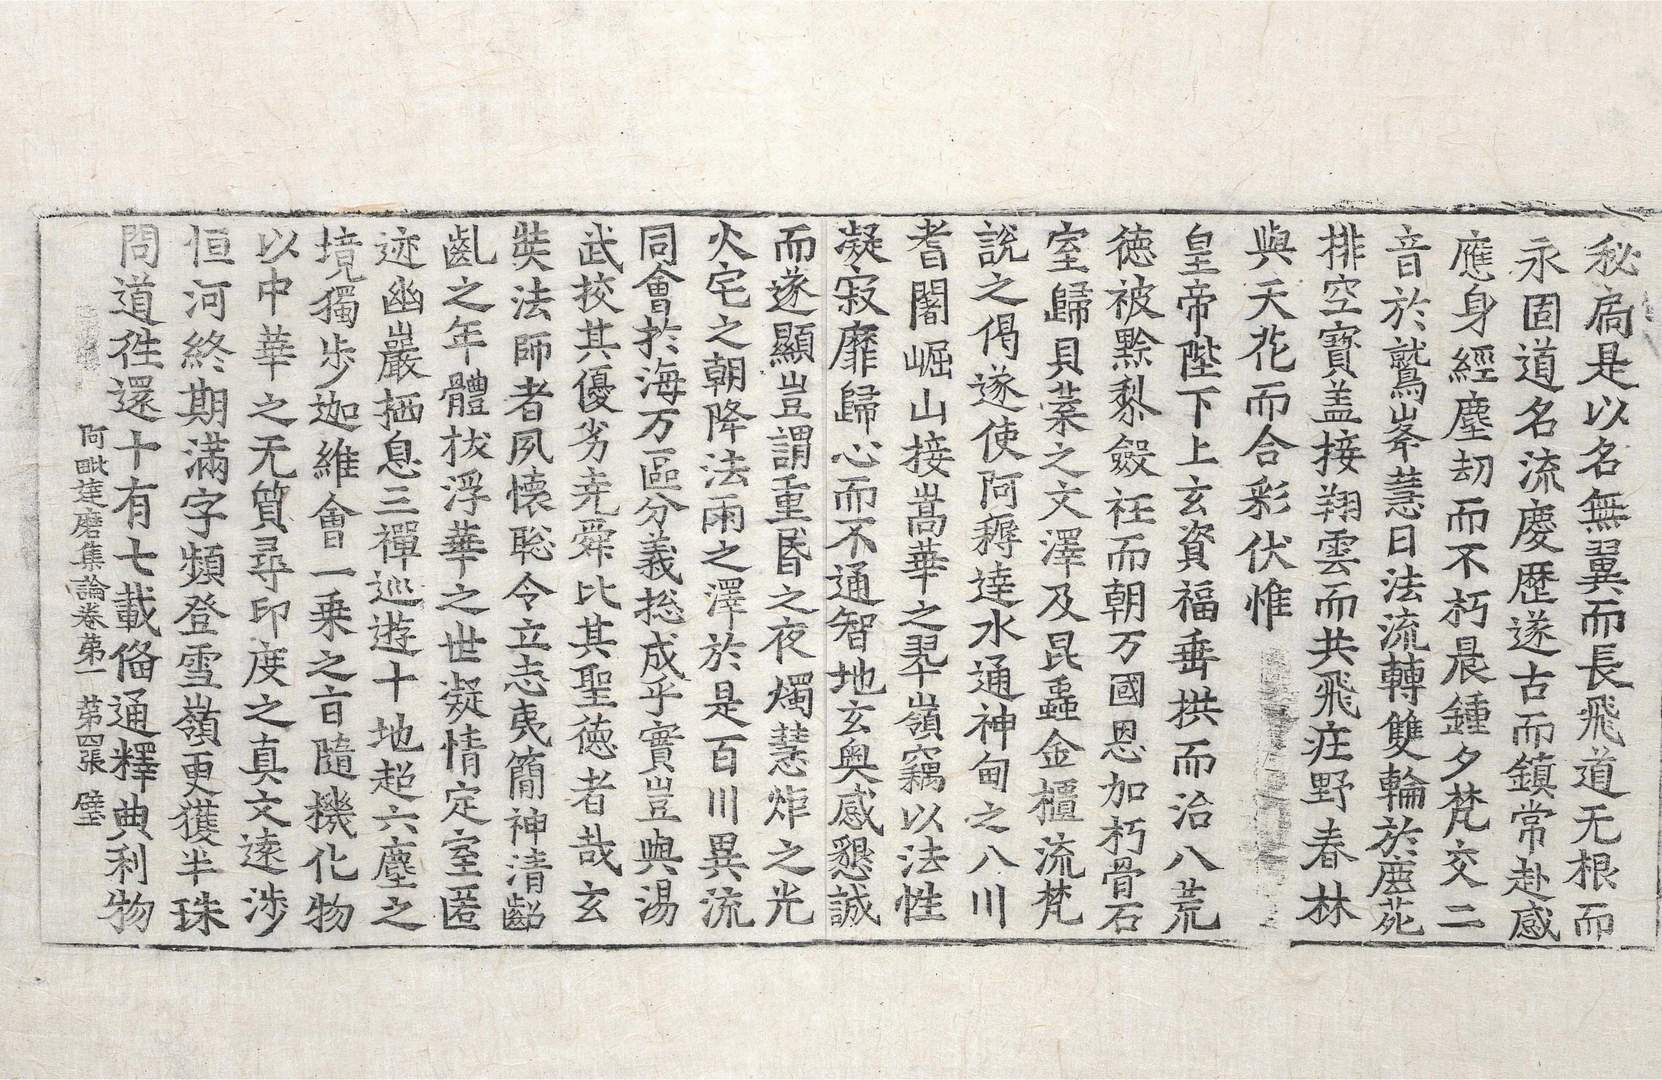 秘扃是以名無翼而長飛道无根而
永固道名流慶歷遂古而鎮常赴感
應身經塵劫而不朽晨鍾夕梵交二
音於鷲峯慧日法流轉雙輪於鹿菀
排空寶盖接翔雲而共飛庄野春林
與天花而合彩伏惟
皇帝陛下上玄資福垂拱而治八荒
德被黔黎斂衽而朝万國恩加朽骨石
室歸貝葉之文澤及昆蟲金櫃流梵
說之偈遂使阿耨達水通神甸之八川
耆闍崛山接嵩華之翠嶺竊以法性
凝寂靡歸心而不通智地玄奧感懇誠
而遂顯豈謂重昏之夜燭慧炬之光
火宅之朝降法雨之澤於是百川異流
同會於海万區分義揔成乎實豈與湯
武挍其優劣尭舜比其聖德者哉玄
奘法師者夙懷聡令立志夷簡神清齠
齓之年體拔浮華之世凝情定室匿
迹幽巖栖息三禪巡遊十地超六塵之
境獨歩迦維會一乘之㫖隨機化物
以中華之无質尋印度之真文逺涉
恒河終期滿字頻登雪嶺更獲半珠
問道徃還十有七載俻通釋典利物
阿毗達磨集論卷苐一 苐四張 璧